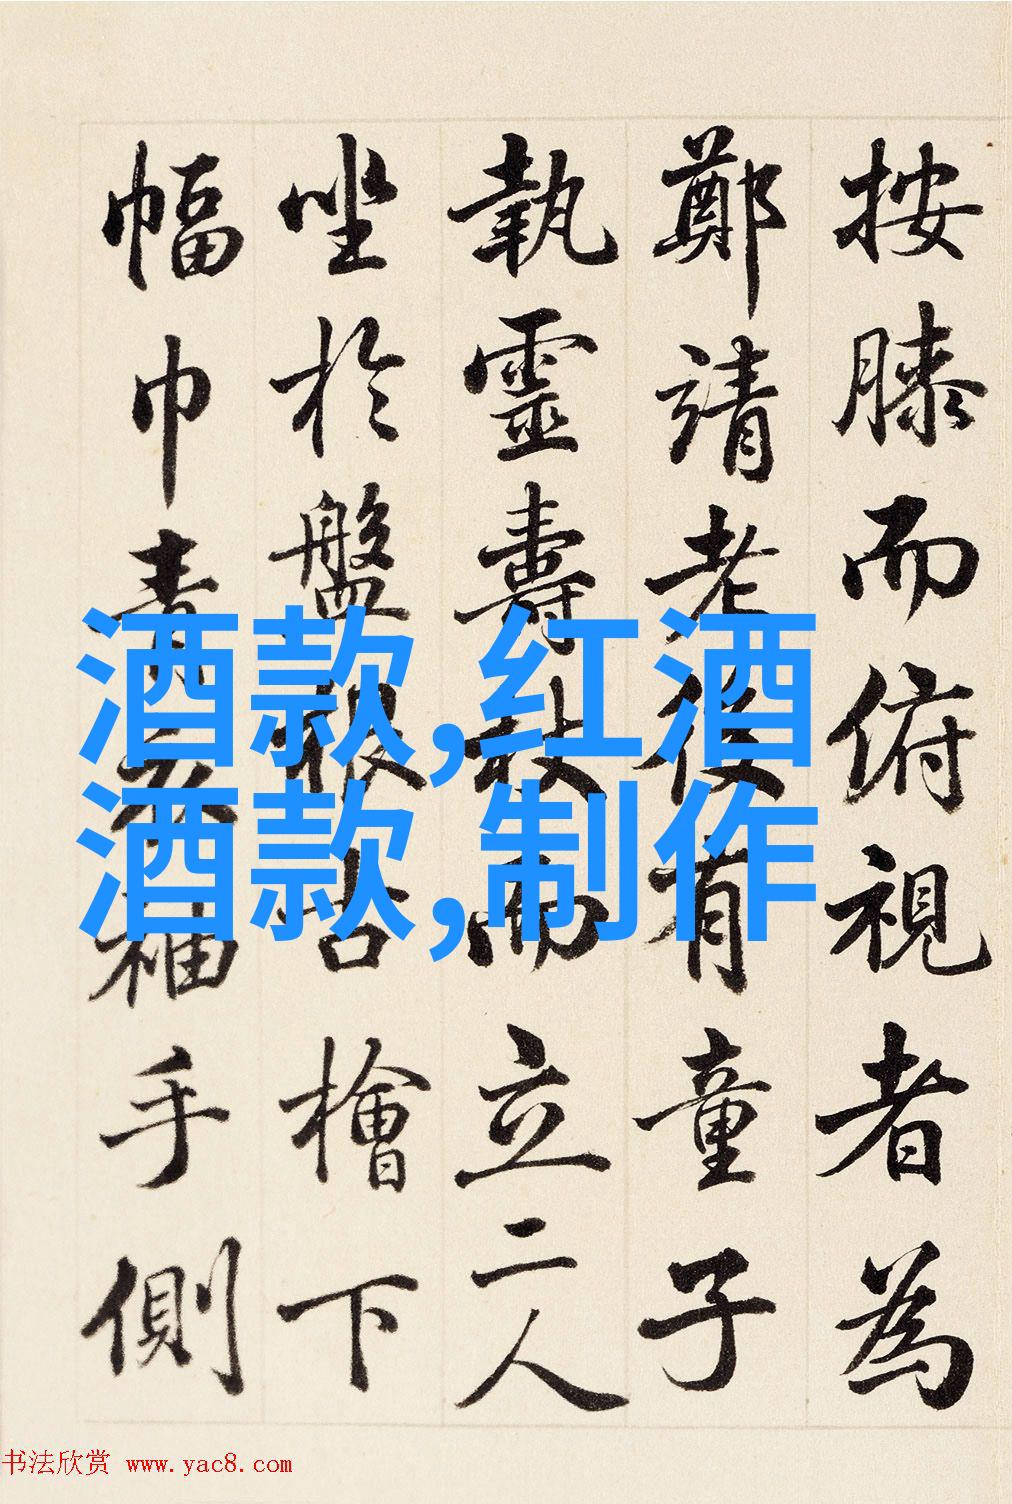 按膝而俯視者為
鄭靖老後有童子
執靈壽杖而立二人
坐於盤根古檜下
幅巾青衣袖手側
酒款,红酒
酒款,制作
书法欣赏 www.yac8.com